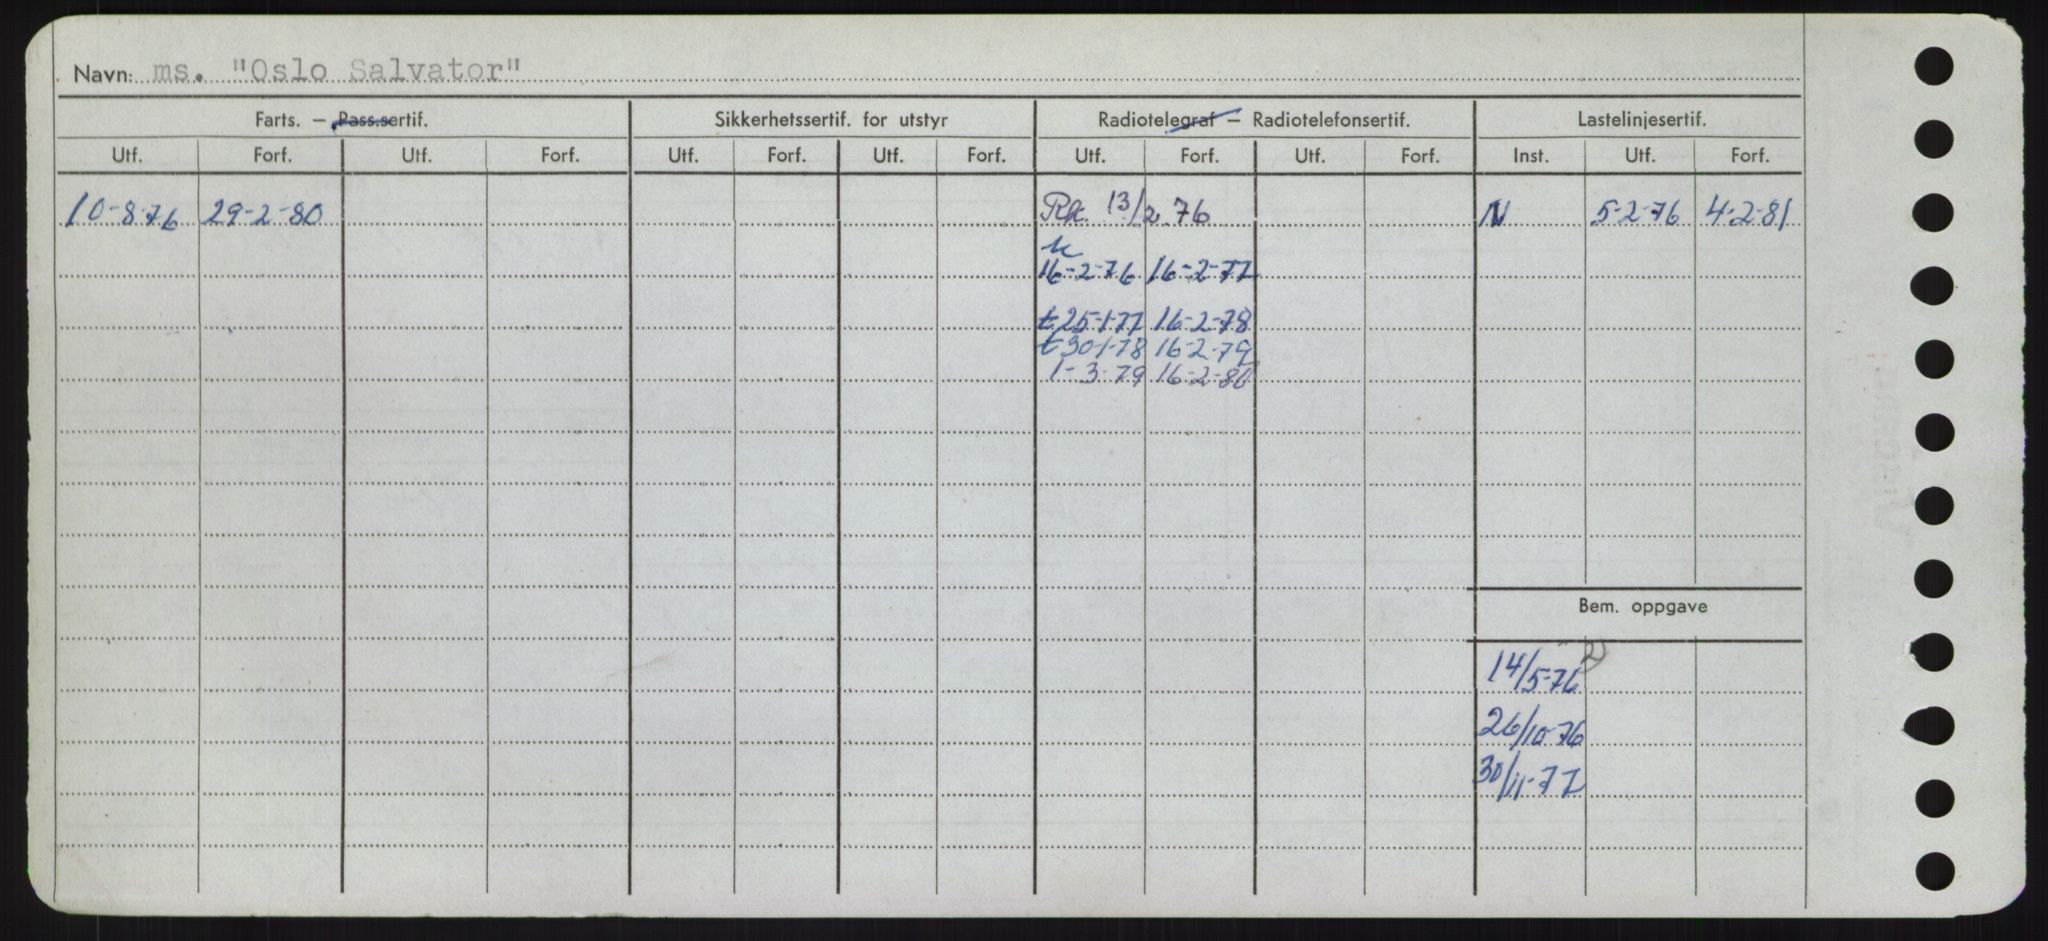 Navn: ms. "Oslo Salvator"
Farts. — Pass.sertif. Sikkerhetssertif. for utstyr Radiotelegraf — Radiotelefonsertif. Lastelinjesertif.
Utf. Forf. Utf. Forf. Utf. Forf. Utf. Forf. Utf. Forf. Utf. Forf. Inst. Utf. Forf.
10-8-76 29-2-80 13/2 76 N 5-2-76 4-2-81
16-2-76 16-2-77
t 25-1-77 16-2-78
t 30-1-78 16-2-79
1-3-79 16-2-80
Bem. oppgave
14/5-76 2)
26/10-76
30/11-77